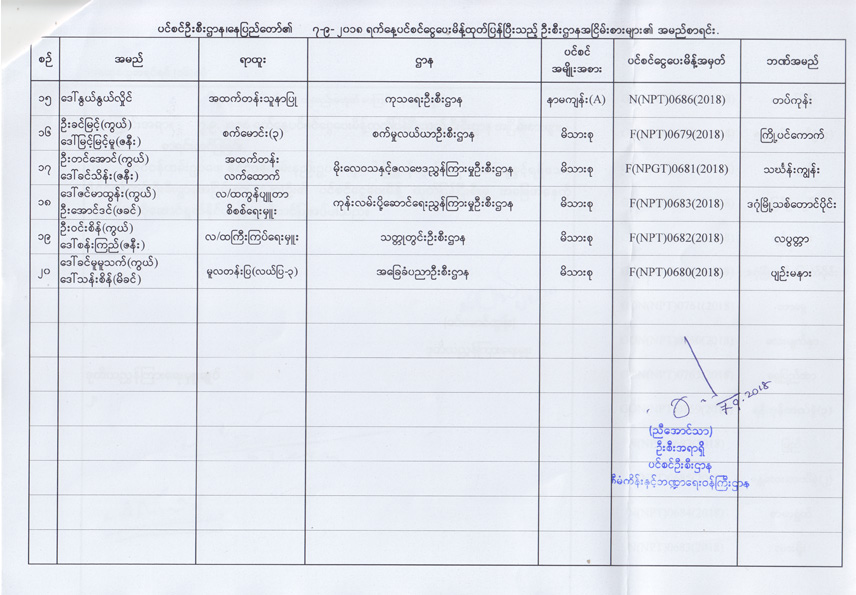 ပင်စင်ဦးစီးဌာန၊နေပြည်တော်၏ ၇-၉-၂၀၁၈ ရက်နေ့ပင်စင်ငွေပေးမိန့်ထုတ်ပြန်ပြီးသည့် ဦးစီးဌာနအငြိမ်းစားများ၏ အမည်စာရင်း.
စဉ် အမည် ရာထူး ဌာန ပင်စင် အမျိုးအစား ပင်စင်ငွေပေးမိန့်အမှတ် ဘဏ်အမည်
၁၅ ဒေါ်နွယ်နွယ်လှိုင် အထက်တန်းသူနာပြု ကုသရေးဦးစီးဌာန နာမကျန်း(A) N(NPT)0686(2018) တပ်ကုန်း
၁၆ ဦးခင်မြင့်(ကွယ်) ဒေါ်မြင့်မြင့်မူ(ဇနီး) စက်မောင်း(၃) စက်မှုလယ်ယာဦးစီးဌာန မိသားစု F(NPT)0679(2018) ကြို့ပင်ကောက်
၁၇ ဦးတင်အောင်(ကွယ်) ဒေါ်ခင်သိန်း(ဇနီး) အထက်တန်း လက်ထောက် မိုးလေဝသနှင့်ဇလဗေဒညွှန်ကြားမှုဦးစီးဌာန မိသားစု F(NPGT)0681(2018) သင်္ဃန်းကျွန်း
၁၈ ဒေါ်ဇင်မာထွန်း(ကွယ်) ဦးအောင်ဒင်(ဖခင်) လ/ထကွန်ပျူတာ စိစစ်ရေးမှူး ကုန်းလမ်းပို့ဆောင်ရေးညွှန်ကြားမှုဦးစီးဌာန မိသားစု F(NPT)0683(2018) ဒဂုံမြို့သစ်တောင်ပိုင်း
၁၉ ဦးဝင်းစိန်(ကွယ်) ဒေါ်စန်းကြည်(ဇနီး) လ/ထကြီးကြပ်ရေးမှူး သတ္တုတွင်းဦးစီးဌာန မိသားစု F(NPT)0682(2018) လပွတ္တာ
၂၀ ဒေါ်ခင်မူမူသက်(ကွယ်) ဒေါ်သန်းစိန်(မိခင်) မူလတန်းပြ(လယ်ပြ-၃) အခြေခံပညာဦးစီးဌာန မိသားစု F(NPT)0680(2018) ပျဉ်းမနား
7.9.2018
(ညီအောင်သာ)
ဦးစီးအရာရှိ
ပင်စင်ဦးစီးဌာန
စီမံကိန်းနှင့်ဘဏ္ဍာရေးဝန်ကြီးဌာန